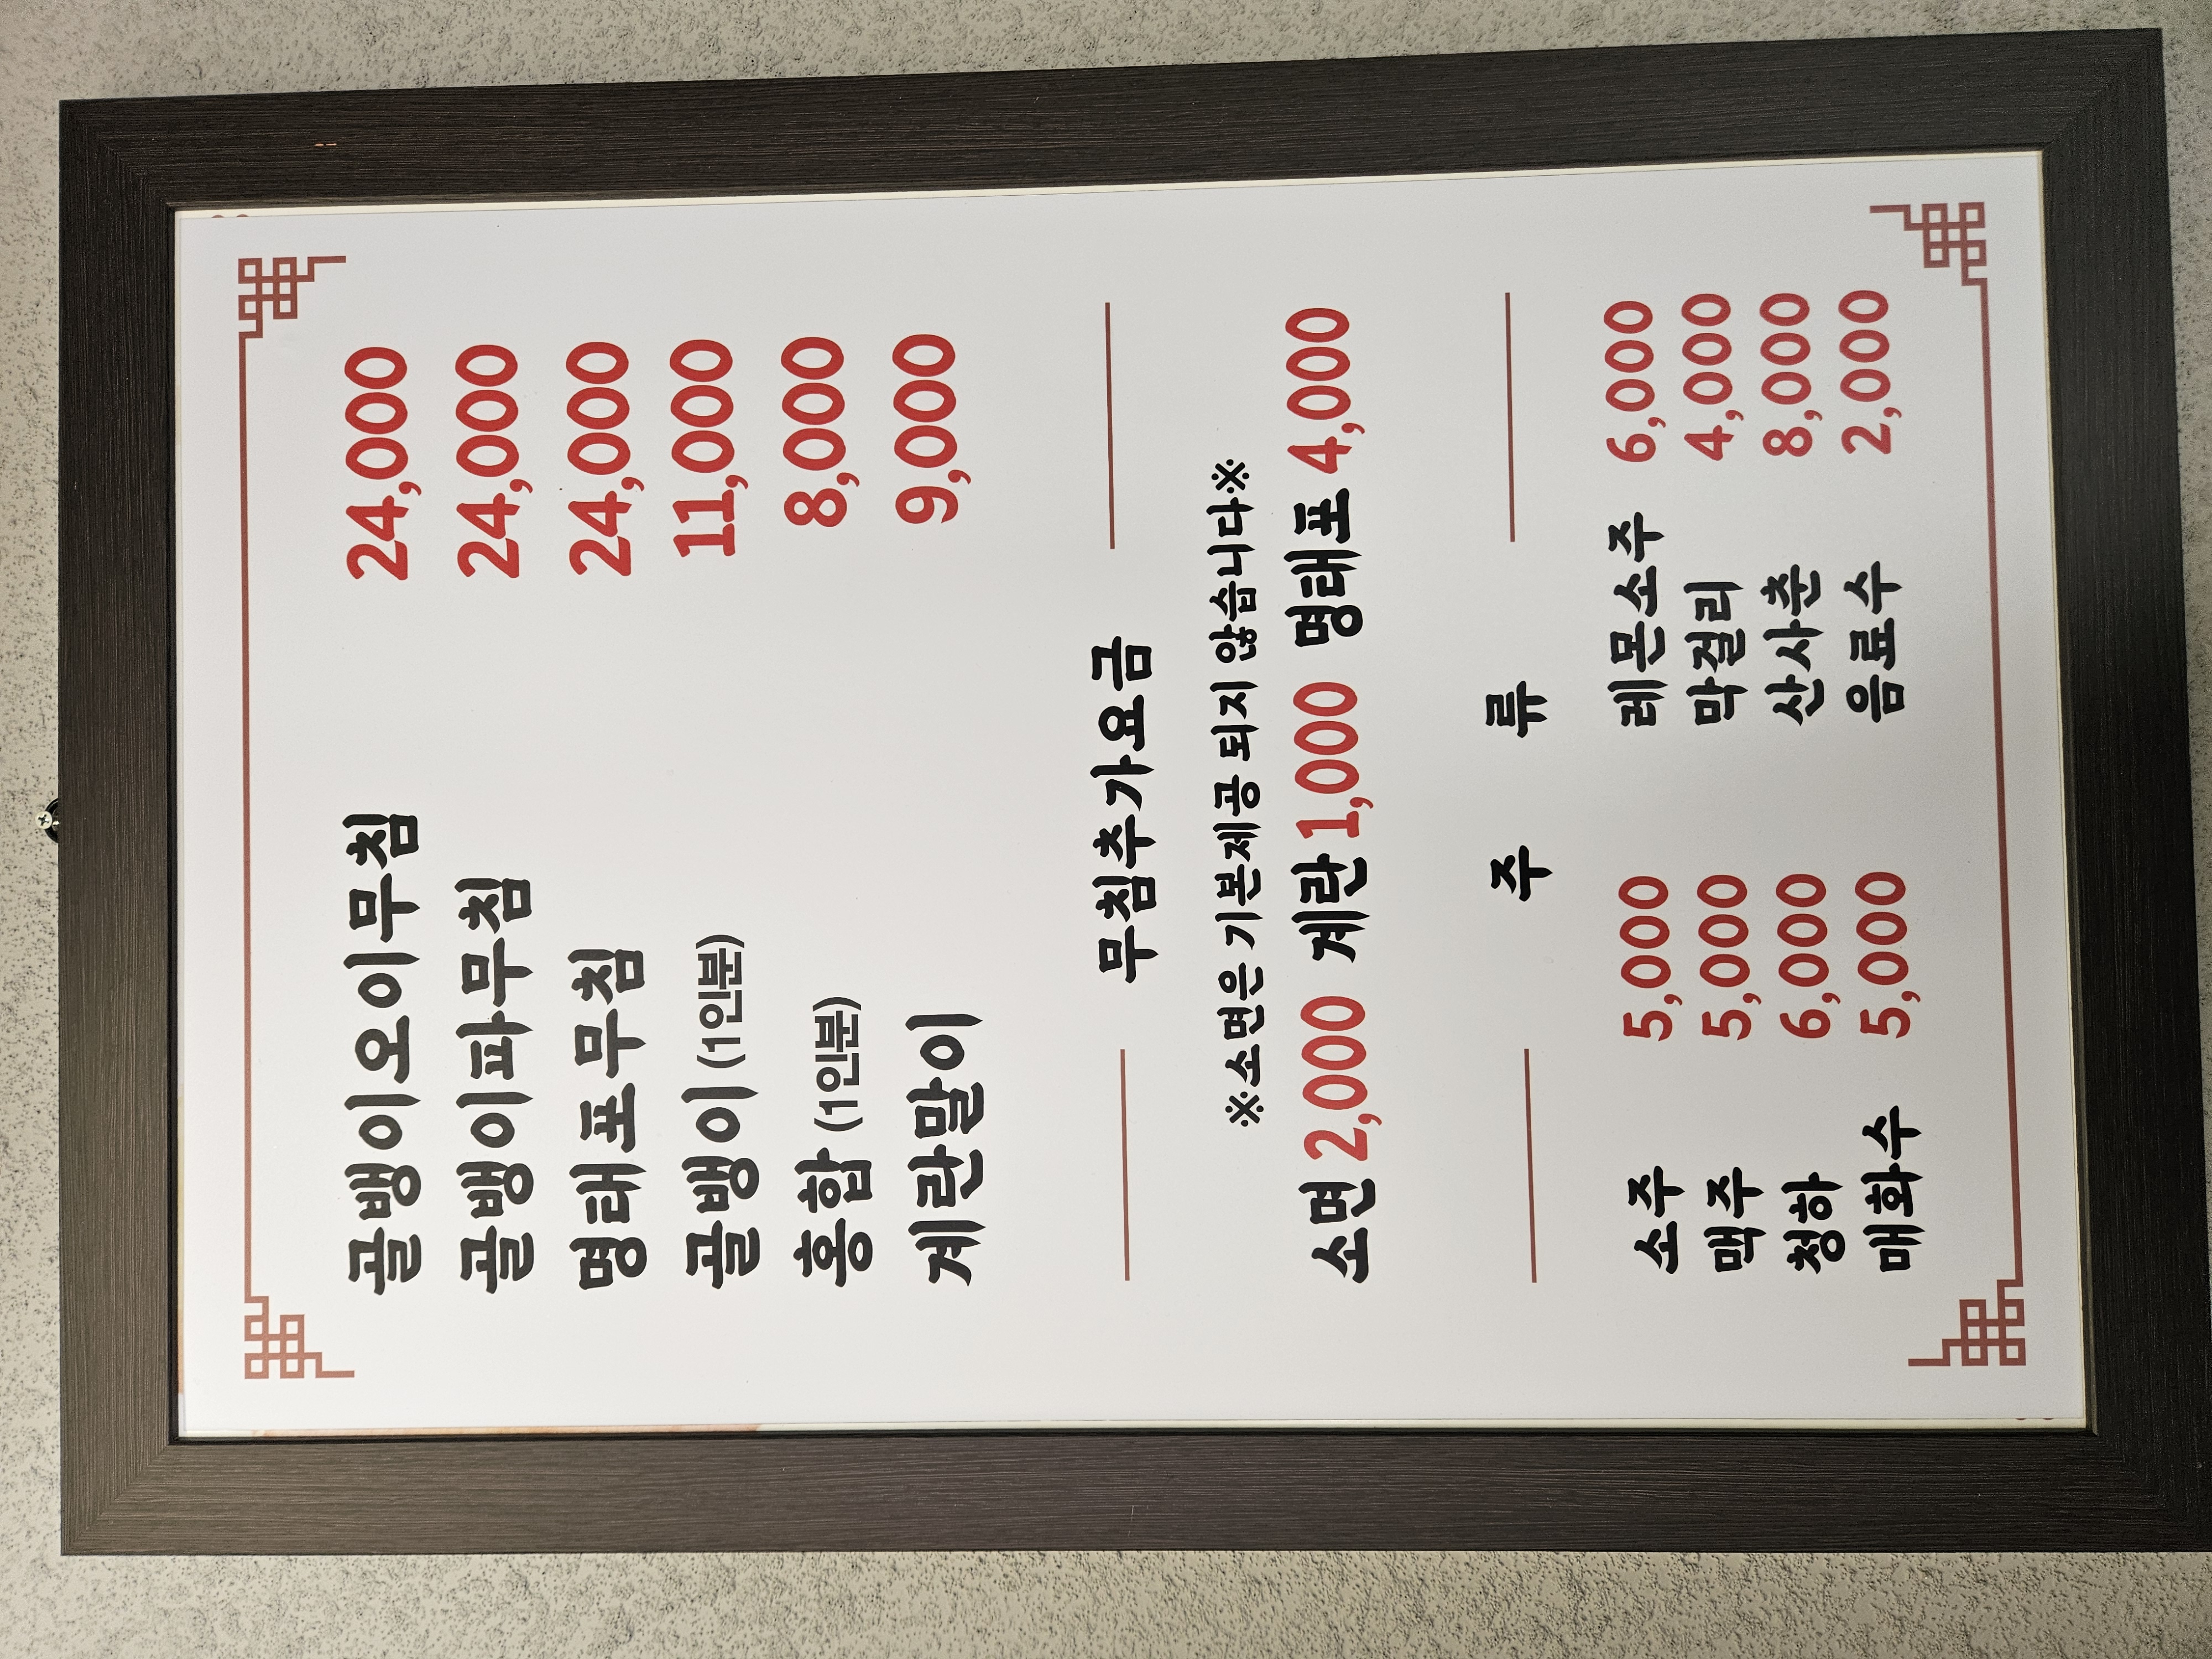 골뱅이오이무침 24,000
골뱅이파무침 24,000
명태포무침 24,000
골뱅이 (1인분) 11,000
홍합 (1인분) 8,000
계란말이 9,000
무침추가요금
※소면은 기본제공 되지 않습니다※
소면 2,000 계란 1,000 명태포 4,000
주 류
소주 5,000 레몬소주 6,000
맥주 5,000 막걸리 4,000
청하 6,000 산사춘 8,000
매화수 5,000 음료수 2,000